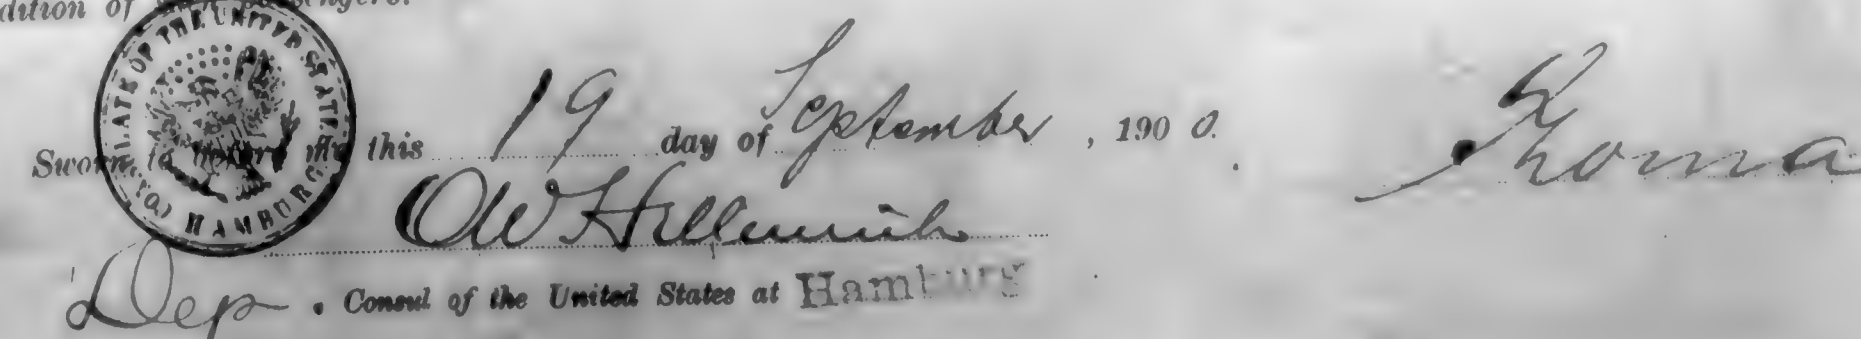 dition of
CONSULATE OF THE UNITED STATES
HAMBURG
Sworn to before me this 19 day of September, 1900.
Thoma
O W
Dep. Consul of the United States at Hamburg